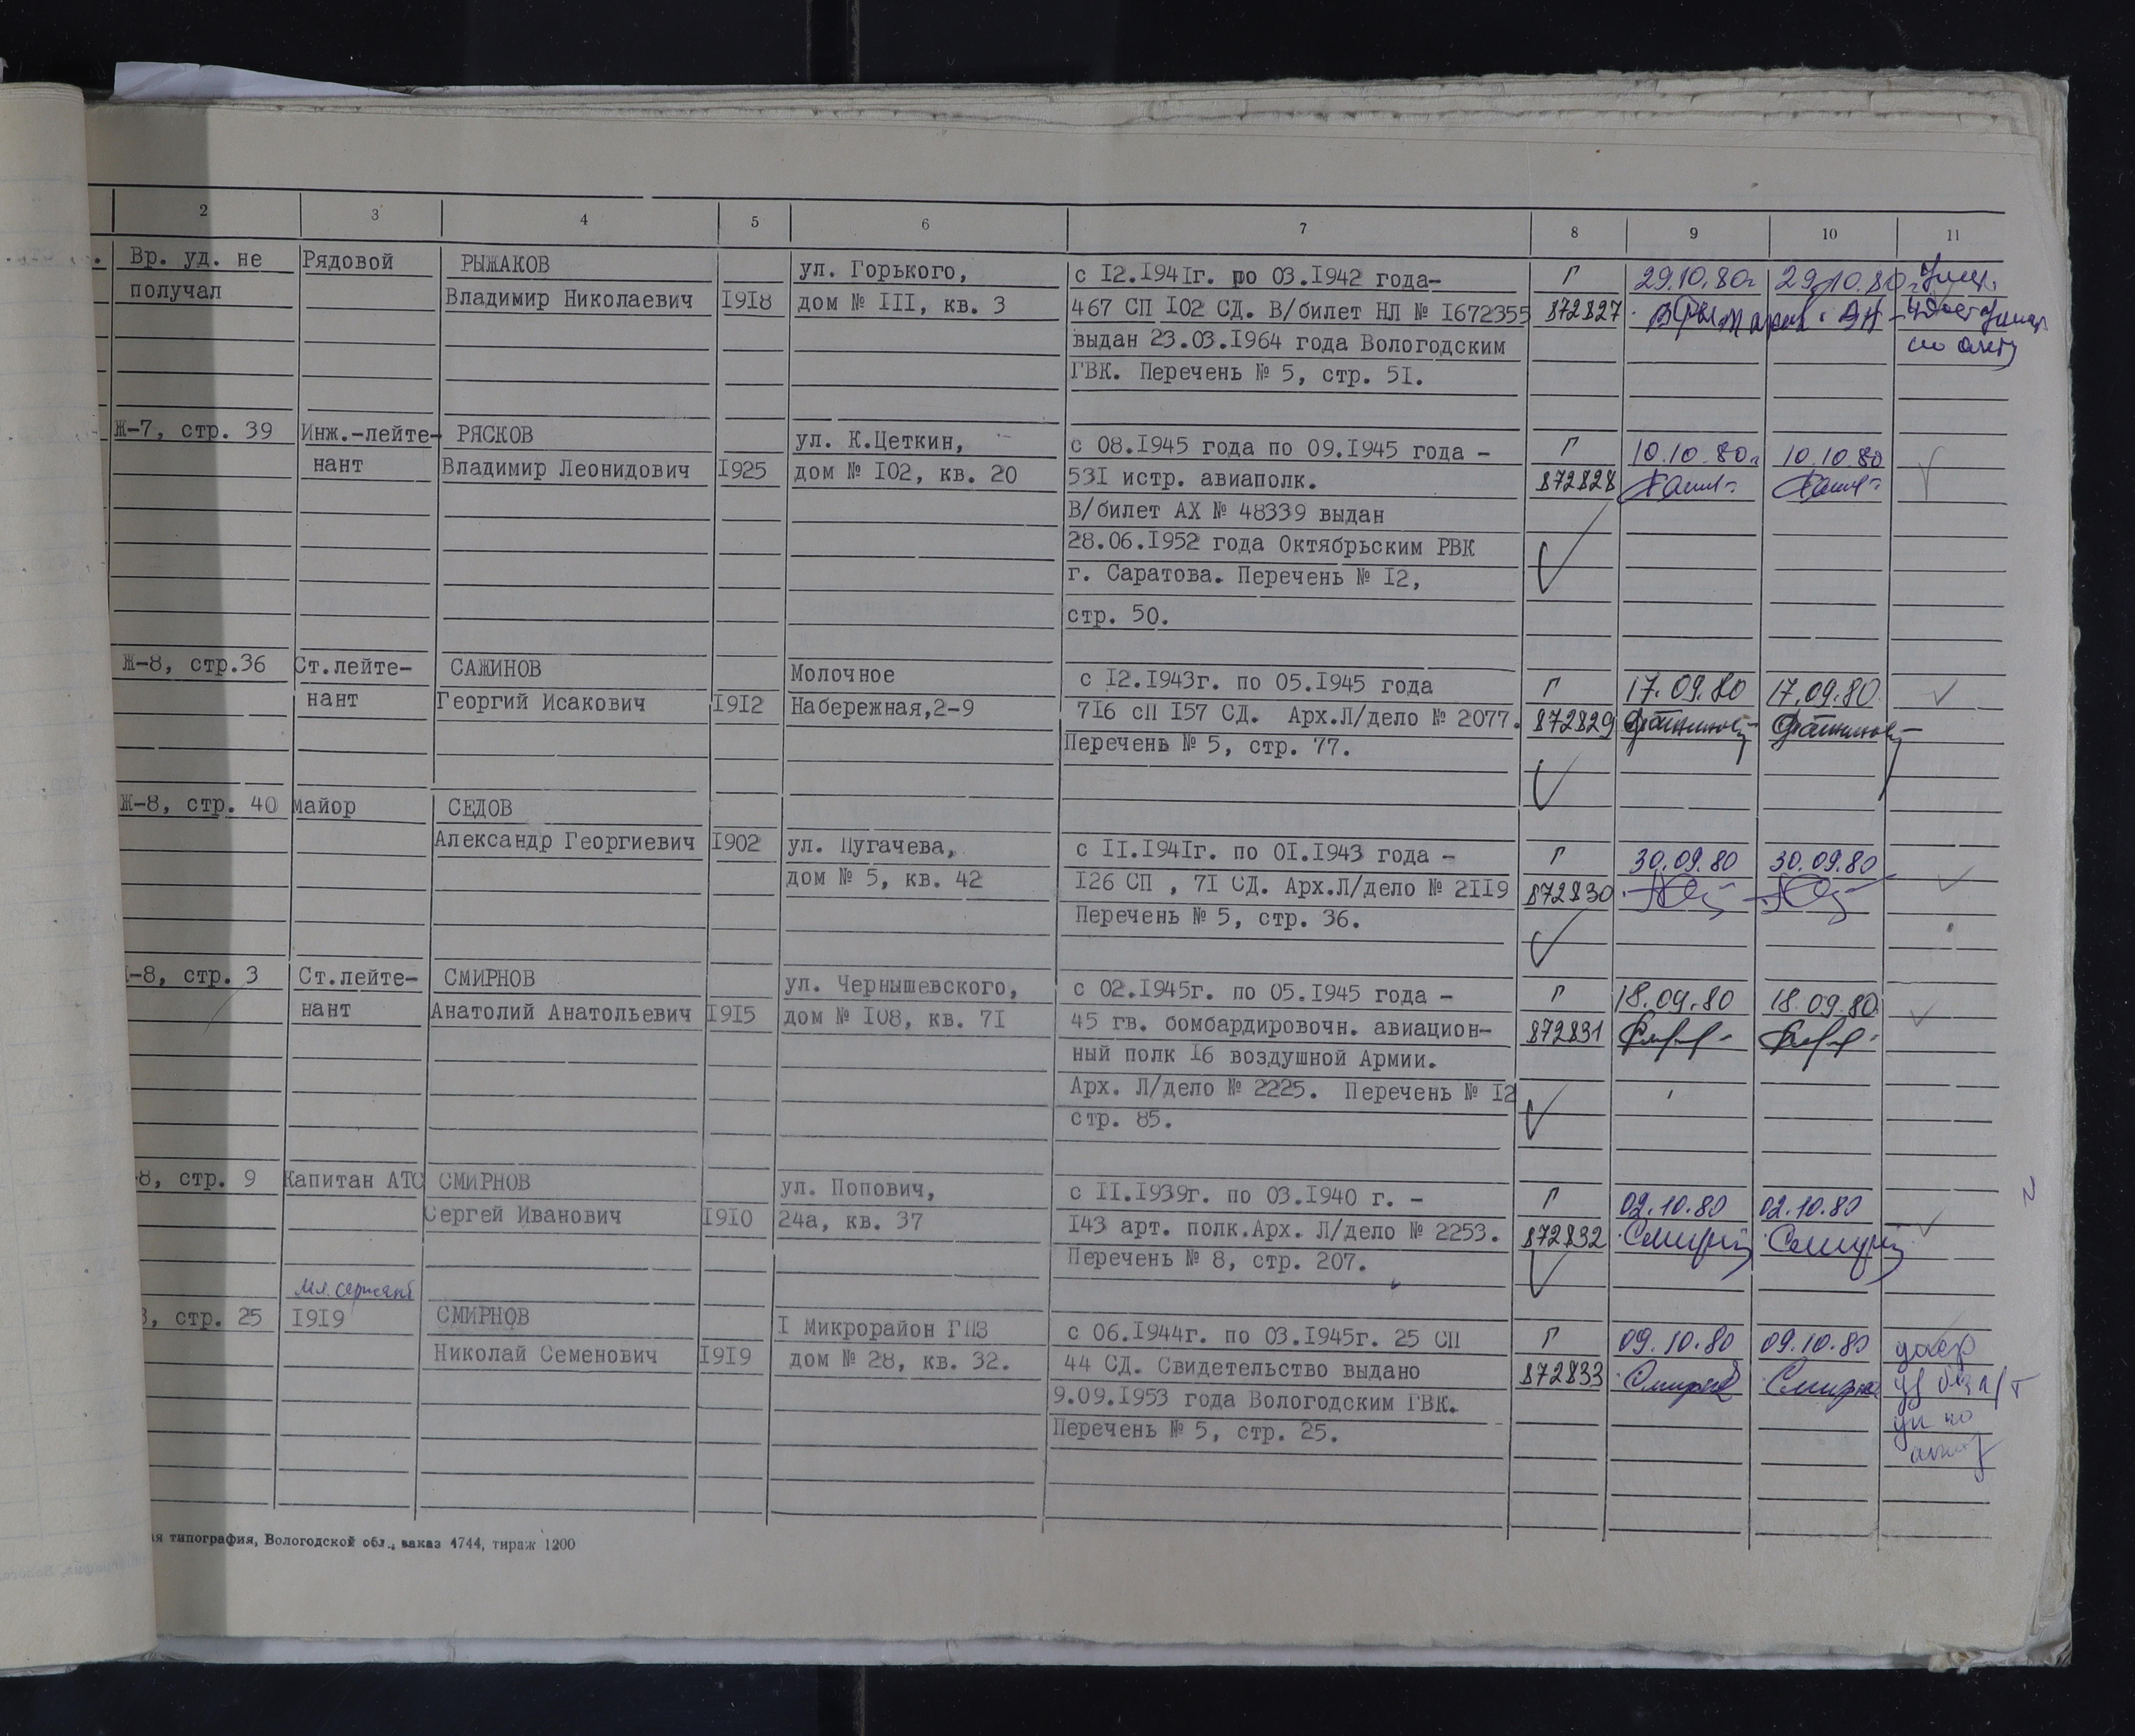 2 3 4 5 6 7 8 9 10 11
Вр. уд. не Рядовой РЫЖАКОВ ул. Горького, с I2.I94Iг. по 03.I942 года- Г 29.10.80г 29.10.80г
получал Владимир Николаевич I9I8 дом № III, кв. 3 467 СП I02 СД. В/билет НЛ № I672355 872827
выдан 23.03.I964 года Вологодским
ГВК. Перечень № 5, стр. 5I.
Ж-7, стр. 39 Инж.-лейте- РЯСКОВ ул. К.Цеткин, с 08.I945 года по 09.I945 года - Г 10.10.80г 10.10.80
нант Владимир Леонидович I925 дом № I02, кв. 20 53I истр. авиаполк. 872828
В/билет АХ № 48339 выдан
28.06.I952 года Октябрьским РВК
г. Саратова. Перечень № I2,
стр. 50.
Ж-8, стр.36 Ст.лейте- САЖИНОВ Молочное с I2.I943г. по 05.I945 года Г 17.09.80 17.09.80
нант Георгий Исакович I9I2 Набережная,2-9 7I6 сП I57 СД. Арх.Л/дело № 2077. 872829
Перечень № 5, стр. 77.
Ж-8, стр. 40 майор СЕДОВ
Александр Георгиевич I902 ул. Пугачева, с II.I94Iг. по 0I.I943 года - Г 30.09.80 30.09.80
дом № 5, кв. 42 I26 СП , 7I СД. Арх.Л/дело № 2II9 872830
Перечень № 5, стр. 36.
-8, стр. 3 Ст.лейте- СМИРНОВ ул. Чернышевского, с 02.I945г. по 05.I945 года - Г 18.09.80 18.09.80
нант Анатолий Анатольевич I9I5 дом № I08, кв. 7I 45 гв. бомбардировочн. авиацион- 872831
ный полк I6 воздушной Армии.
Арх. Л/дело № 2225. Перечень № I2
стр. 85.
-8, стр. 9 Капитан АТС СМИРНОВ ул. Попович, с II.I939г. по 03.I940 г. - Г 02.10.80 02.10.80
Сергей Иванович I9I0 24а, кв. 37 I43 арт. полк.Арх. Л/дело № 2253. 872832
Перечень № 8, стр. 207.
Мл. сержант
8, стр. 25 I9I9 СМИРНОВ I Микрорайон ГПЗ с 06.I944г. по 03.I945г. 25 СП Г 09.10.80 09.10.80
Николай Семенович I9I9 дом № 28, кв. 32. 44 СД. Свидетельство выдано 872833
9.09.I953 года Вологодским ГВК.
Перечень № 5, стр. 25.
ая типография, Вологодской обл., заказ 4744, тираж 1200